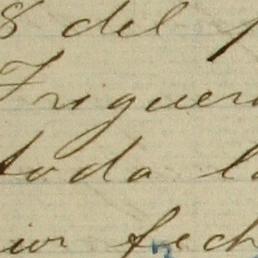 8 del p
Friguer
toda l
ior fech